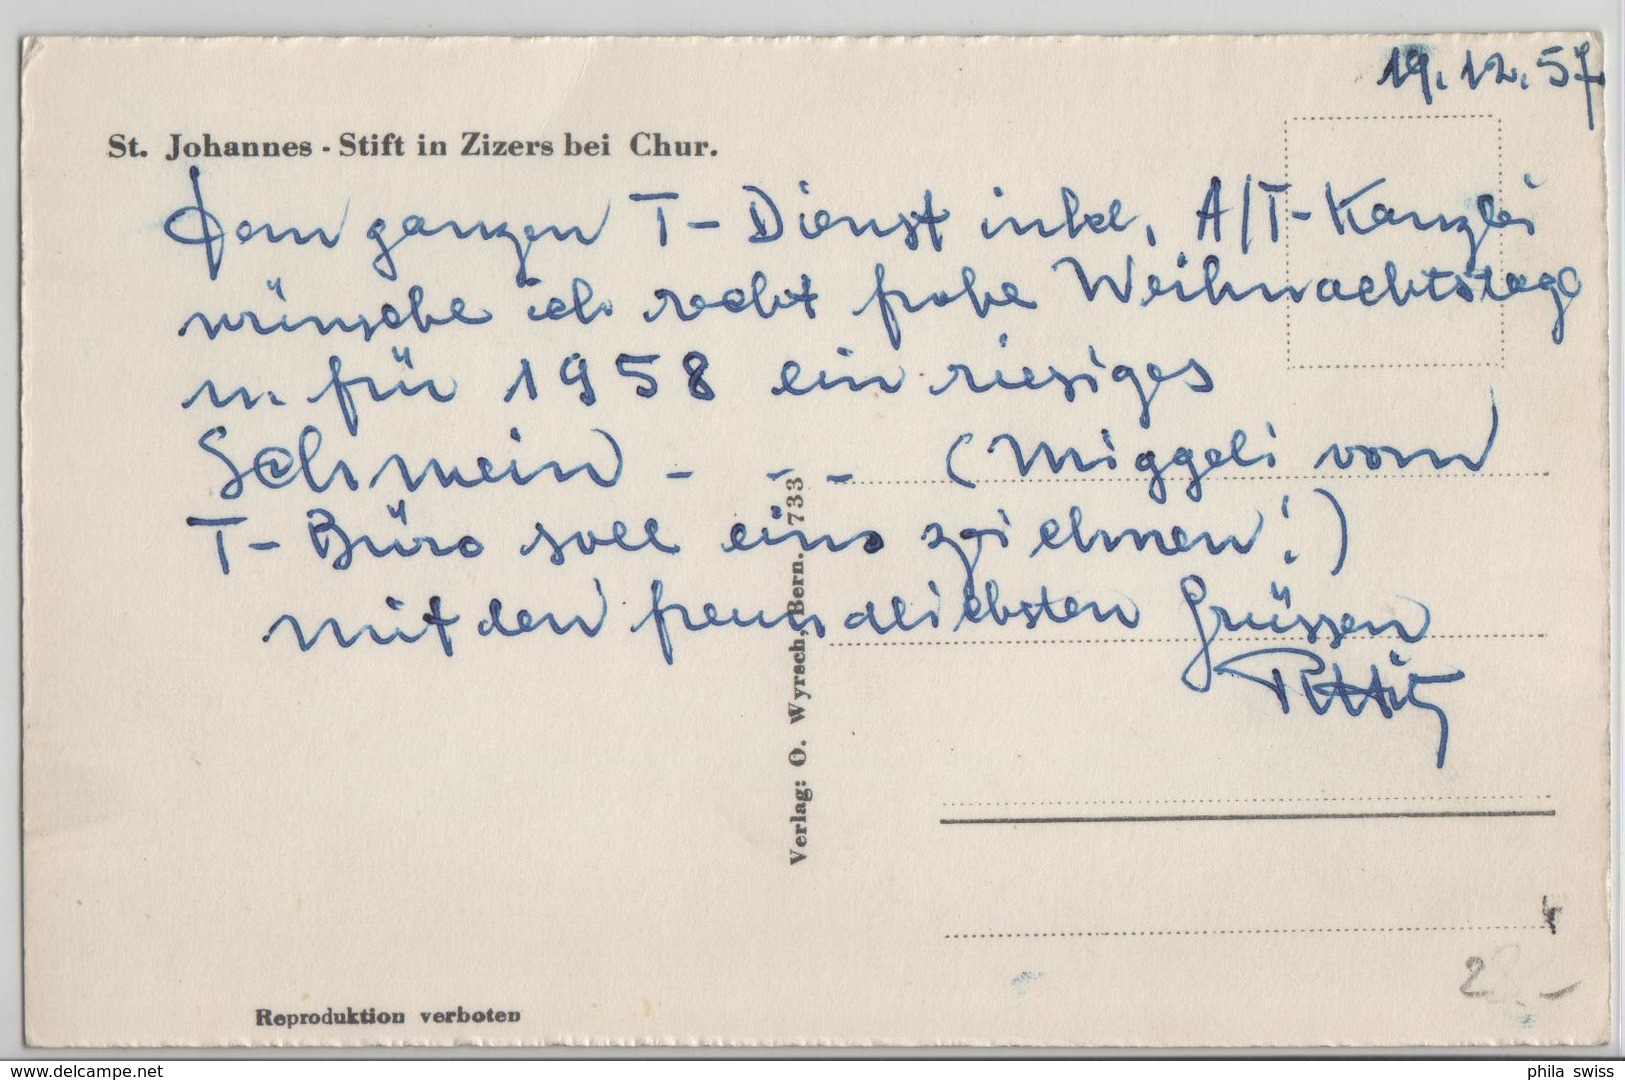 19.12.57
St. Johannes - Stift in Zizers bei Chur.
Dem ganzen T-Dienst inkl. A/T-Kanzlei
wünsche ich recht frohe Weihnachtstage
u. für 1958 ein riesiges
Schwein - - - (Miggeli vom
T-Büro soll eins zeichnen!)
Mit den freundlichsten Grüssen
Verlag: O. Wyrsch, Bern. 733
Reproduktion verboten
delcampe.net
phila swiss